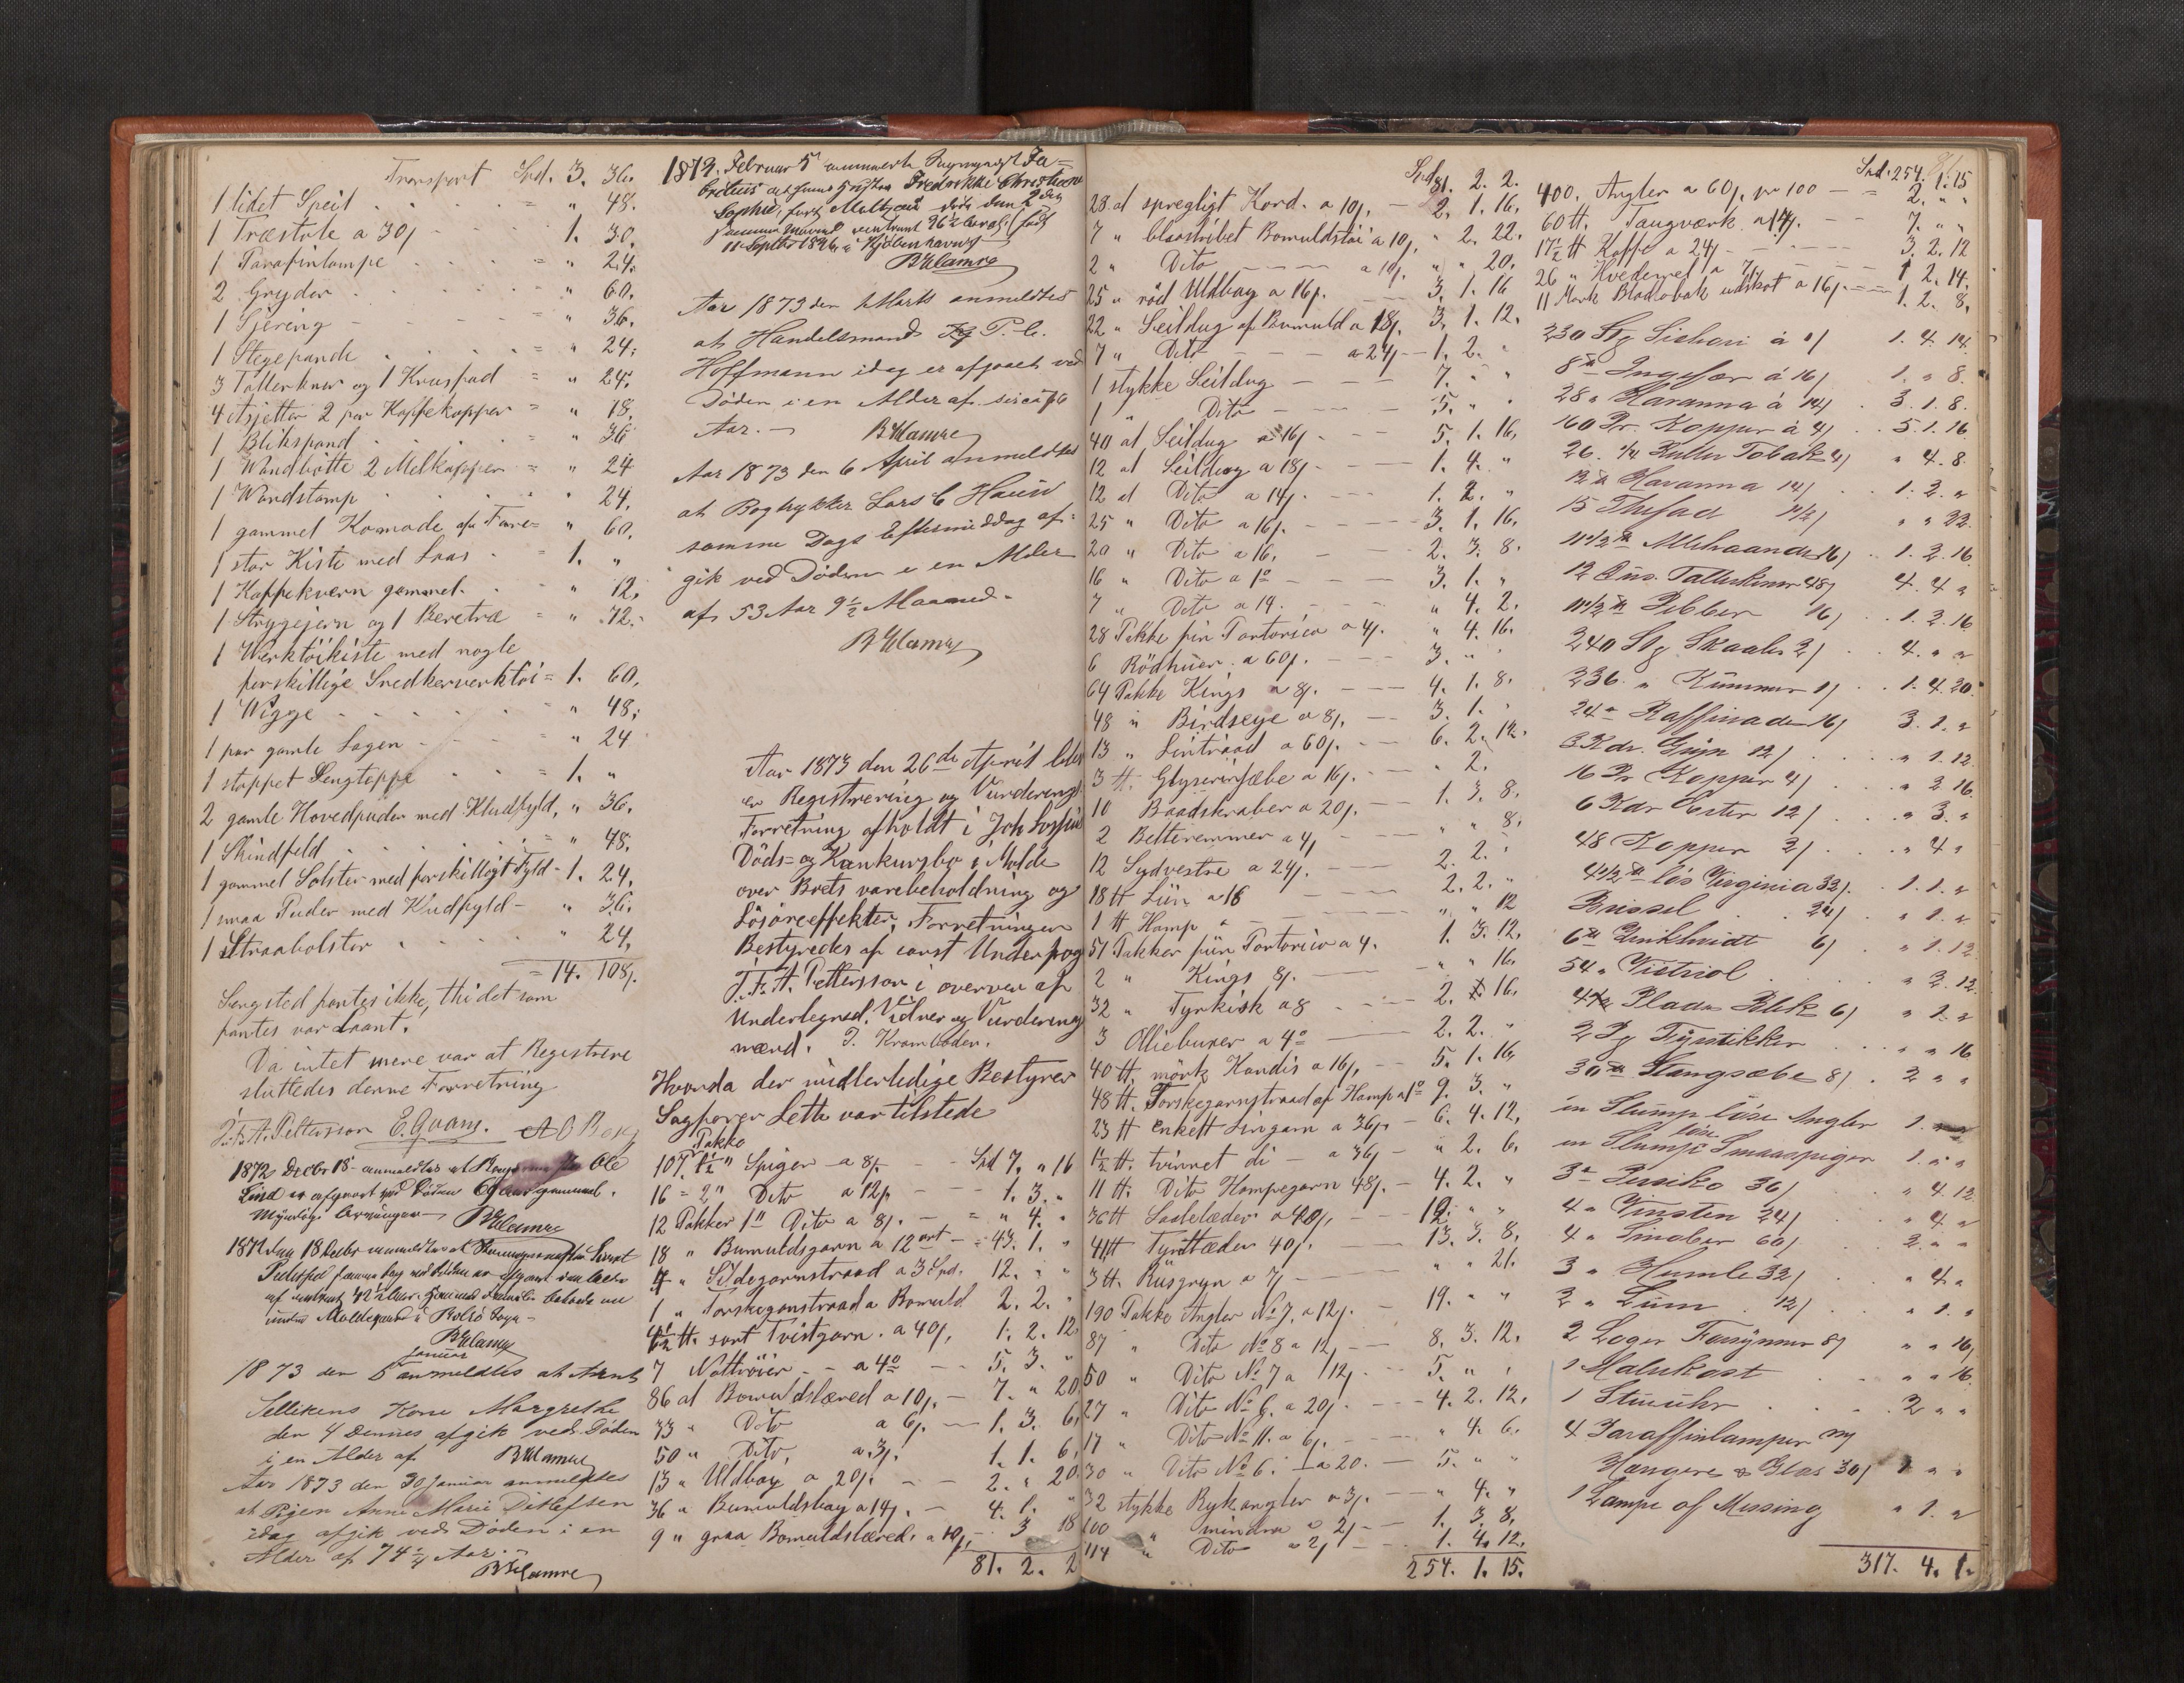 Transport Spd. 3. 36.
1 lidet Speil " 48.
1 Træstole a 30/ 1. 30.
1 Parafinlampe " 24.
2 Gryder " 60.
1 Sjering " 36.
1 Stegepande " 24.
3 Tallerkner og 1 Krusfad = " 24.
4 Asjetter 2 par Kaffekopper = " 18.
1 Blikspand = " 36
1 Wandbøtte 2 Melkekopper = " 24
1 Wandstamp " 24.
1 gammel Komode af Furre = " 60.
1 stor Kiste med Laas = 1. "
1 Kaffekværn gammel " 12.
1 Strygejern og 1 Beretræ = " 72.
1 Verktöikiste med nogle
forskillige Snedkerverktöi = 1. 60.
1 Wigge " 48.
1 par gamle Lagen " 24
1 stoppet Sengtæppe = 1. "
2 gamle Hovedpuder med Kludfyld, " 36.
1 Skindfeld = " 48.
1 gammel Bolster med forskilligt Fyld - 1. 24.
1 smaa Puder med Kludfyld - " 36.
1 Straabolster " 24.
= 14. 108/.
Sengsted pantes ikke, thi det som
pantes var Laant.
Da intet mere var at Registrere
sluttedes denne Forretning
J.F.A. Petterson E. Qvam.
1872 Decbr 18 anmeldtes at Ole
Lind er afgaaet ved Döden 69 aar gammel.
Myndige Arvinger
B Hamre
1872 den 18 Decbr anmeldtes at
samme Dag ved Döden er afgaaet
Moldegaard i Bolsö Sogn
B Hamre
Januar
1873 den 5 anmeldtes at Arnt
Sellikens Kone Margrethe
den 4 Dennes afgik ved Döden
i en Alder af B Hamre
Aar 1873 den 30 Januar anmeldtes
at Pigen Anne Marie Ditlefsen
idag afgik ved Döden i en
Alder af 74 1/4 Aar.
B Hamre
1873. Februar 5 anmeldte
Fredrikke Christiane
Sophie, født Moltzau döde den 2 den
(född
11 Septbr 1896 i Kjöbenhavn
B Hamre
Aar 1873 den 1 Marts anmeldtes
at Handelsmand P. C.
Hoffmann idag er afgaaet ved
Döden i en Alder af circa 76
Aar. B Hamre
Aar 1873 den 6 April anmeldtes
at Bogtrykker Lars C Hauw
samme Dags Eftermiddag af-
gik ved Döden i en Alder
af 53 Aar 9 1/2 Maaned.
B Hamre
Aar 1873 den 26de April blev
en Registrering og Vurderings
Forretning afholdt i Joh Lossius
Döds- og Konkursbo i Molde
over Boets varebeholdning og
Lösöreeffekter. Forretningen
Bestyredes af const Underfoged
J.F.A. Petterson i overvær af
Undertegned. Vidner og Vurderings
mænd. I. Kramboden.
Hvorda der midlertidige Bestyrer
Sagförer Lette var tilstede
Pakke
10 1/2" Spiger a 8/ - Spd 7. " 16
16 = 2" Dito a 12/ - 1. 3. "
12 Pakker 1" Dito a 8/ - = " 4. "
18 " Bumuldsgarn a 12 ort - = 43. 1. "
4 " Sildegarnstraad a 3 Spd. 12. " "
1 " Torskegarnstraad a Bomuld 2. 2. "
4 1/2 ℔. sort Tvistgarn. a 40/. 1. 2. 12
7 Nattröier - a 4° - 5. 3. "
86 al Bomuldslæred a 10/. - 7. " 20
33 " Dito a 6/. - 1. 3. 6.
50 " Dito. a 3/. 1. 1. 6.
13 " Uldbay a 20/. - 2. " 20
36 " Bumuldsbay a 14/. - 4. 1. "
9 " graa Bomuldslæred. a 10/. - 3 18
81. 2. 2
Spd 81. 2. 2.
23 al spregligt Kord. a 10/. - 2. 1. 16.
7 " blaastribet Bomuldstöi a 10/. " 2. 22.
2 " Dito a 10/. " " 20.
25 " röd Uldbay a 16/. - 3. 1. 16
22 " Seildug af Bumuld a 18/. 3. 1. 12.
7 " Dito - - a 24/ - 1. 2. "
1 stykke Seildug - - 7. " "
1 " Dito - - 5. " "
40 al Seildug a 16/. - - 5. 1. 16.
12 al Seildug a 18/. - - 1. 4. "
12 al Dito a 14/. - - 1. 2. "
25 " Dito a 16/. - - 3. 1. 16.
20 " Dito a 16. - - 2. 3. 8.
16 " Dito a 1° - - 3. 1. "
7 " Dito a 14. - - " 4. 2.
28 Pakke fin Portorico a 4/. " 4. 16.
6 Rödhuer. a 60/. - - 3. " "
64 Pakke Kings a 8/. - - 4. 1. 8.
48 " Birdseye a 8/. - 3. 1. "
13 " Lintraad a 60/. - - 6. 2. 12.
3 ℔. Glyserinsæbe a 16/. - - " 2.
10 Baadskraber a 20/. - - 1. 3. 8.
2 Belteremmer a 4/ - - " " 8.
12 Sydvestre a 24/. - - 2. 2. "
18 ℔ Liin a 16 - - 2. 2. "
1 ℔ Hamp a - - " " 12
51 Pakker fiin Portorico a 4. 1. 3. 12.
2 " Kings 8/. - " " 16.
32 " Tyrkisk a 8 - - 2. " 16.
3 Olliebuxer a 4° - - 2. 2. "
40 ℔. mörk Kandis a 16/. - - 5. 1. 16.
48 ℔. Torskegarnstraad af Hamp a 1° 9. 3. "
23 ℔ enkelt Lingarn a 36/. - 6. 4. 12.
1 1/2 ℔. tvinnet di - a 36/ - " 2. 6.
11 ℔. Dito Hampegarn 48/. - 4. 2. "
36 ℔ Saalelæder a 40/. - 12. " "
41 ℔ Tyndlæder 40/. - 13. 3. 8.
3 ℔. Rüsgryn a 7/ - " " 21.
190 Pakke Angler № 7. a 12/. - 19. " "
87 " Dito № 8 a 12 - 8. 3. 12.
50 " Dito № 7 a 12/. - 5. " "
27 " Dito № 6. a 20/. - 4. 2. 12.
17 " Dito № 11. a 6/. - " 4. 6.
30 " Dito № 6. a 20. - 5. " "
32 stykke Rykangler a 3/. - " 4. "
100 " mindre a 2/ - - 1. 3. 8.
114 " Dito a 2/ - - 1. 4. 12.
254. 1. 15.
Spd. 254. 1. 15
400. Angler a 60/. pr 100 - = 2. " "
60 ℔. Taugværk a 14/. - - 7. " "
17 1/2 ℔ Kaffe a 24/ - - 3. 2. 12
26 " Hvedemel a 7/. - - 1 2. 14.
11 Mark Bladtobak udskot a 16/. - - 1. 2. 8.
230 Stg Sichori á 1/ 1. 4. 14.
8 ℔ Ingefær á 16/ 1. " 8.
28 " Havanna á 14/ 3. 1. 8.
160 Pr. Kopper á 4/ 5. 1. 16
26. 1/4 Ruller Tobak 4/ " 4. 8.
12 ℔ Havanna 14/ 1. 2. "
15 Thefad " " 22.
11 1/2 ℔ Allehaande 16/ 1. 2. 16
12 Dus. Tallerkener 48/ 4. 4 "
11 1/2 ℔ Pebber 16/ 1. 2. 16
240 Stg Skaaler 2/ 4. " "
236 " Kummer 1/ 1. 4. 20.
24 " Raffinade 16/ 3. 1. "
3 Kdr. Gryn 12/ " 1. 12.
16 Pr Kopper 4/ " 2 16.
6 Kdr Erter 12/ " 3. "
48 Kopper 2/ " 4 "
4 1/2 ℔ lös Virginia 32/. 1. 1. "
Brissel 24/ " 1. "
6 ℔ Zinkhvidt 6/ " 1. 12
54 " Victriol " 2. 12.
Plader Blik 6/ " 1. "
2 Pg Fyrstikker " " 16
30 ℔ Stangsæbe 8/ 2 " "
en Slump löse Angler 1. " "
en Slump löse Smaaspiger 1. " "
3 " Persiko 36/ " 4. 12
4 " Vinsten 24/ " 4 "
4 " Sinober 60/ 2. " "
3 " Humle 32/ " 4 "
2 " Liim 12/ " 1. "
2 Lager Forsynner 8/ " " 16/
1 Malerkost " " 16.
1 Stueuhr 2 " "
4 Paraffinlamper
Hængere & Glas 30/ 1 " "
1 Lampe af Messing " 1. "
317. 4. 1.